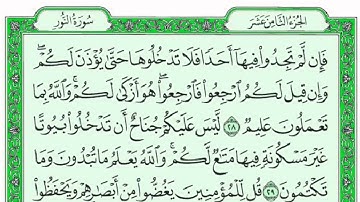 الجزء الثامن عشر
سورة النور
فَإِن لَّمْ تَجِدُوا۟ فِيهَآ أَحَدًا فَلَا تَدْخُلُوهَا حَتَّىٰ يُؤْذَنَ لَكُمْ ۖ
وَإِن قِيلَ لَكُمُ ٱرْجِعُوا۟ فَٱرْجِعُوا۟ ۖ هُوَ أَزْكَىٰ لَكُمْ ۚ وَٱللَّهُ بِمَا
تَعْمَلُونَ عَلِيمٌ ٢٨ لَّيْسَ عَلَيْكُمْ جُنَاحٌ أَن تَدْخُلُوا۟ بُيُوتًا
غَيْرَ مَسْكُونَةٍ فِيهَا مَتَٰعٌ لَّكُمْ ۚ وَٱللَّهُ يَعْلَمُ مَا تُبْدُونَ وَمَا
تَكْتُمُونَ ٢٩ قُل لِّلْمُؤْمِنِينَ يَغُضُّوا۟ مِنْ أَبْصَٰرِهِمْ وَيَحْفَظُوا۟